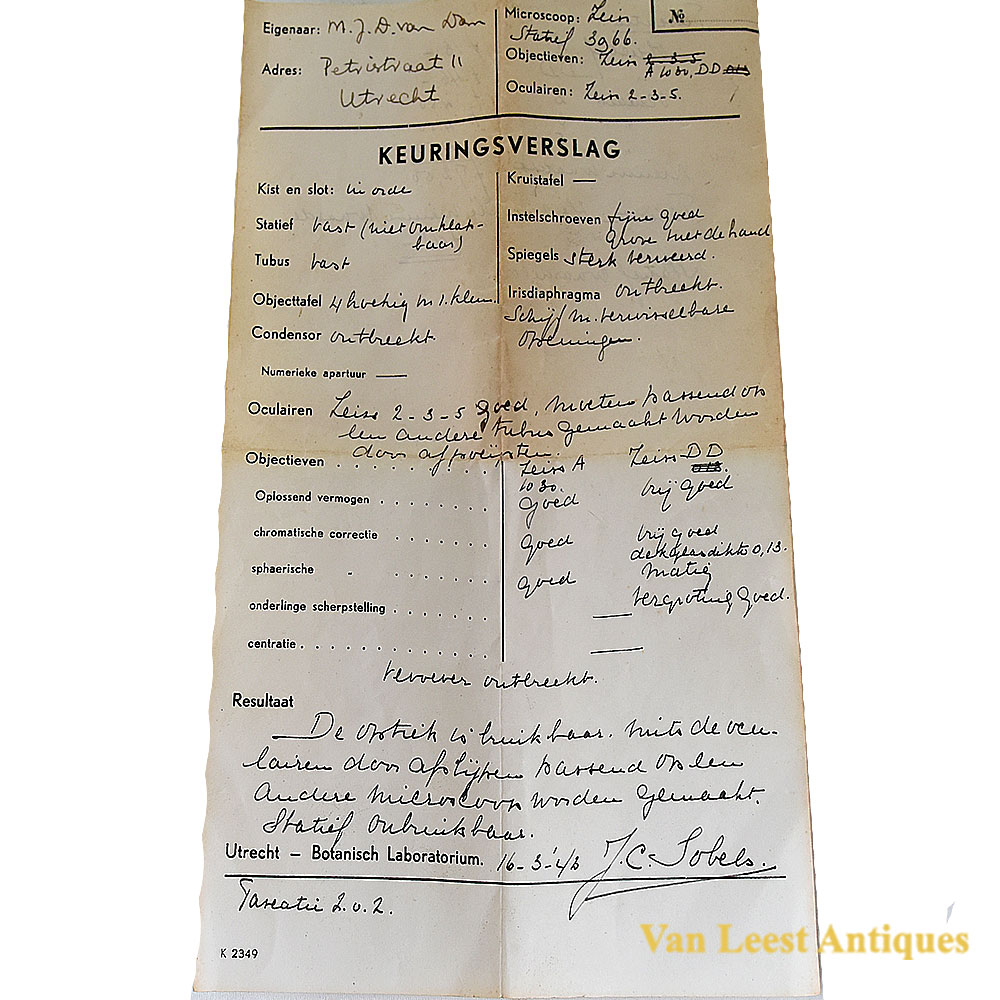 Eigenaar: M. J. D. van Dam
Adres: Petristraat 11
Utrecht
Microscoop: Zeiss
Statief 3966.
Objectieven: Zeiss 2-3-5
A 1030, DD 013
Oculairen: Zeiss 2-3-5.
№
KEURINGSVERSLAG
Kist en slot: in orde
Statief vast (niet omklap-
baar)
Tubus vast
Objecttafel 4 hoekig m 1. klem.
Condensor ontbreekt.
Numerieke apartuur —
Kruistafel —
Instelschroeven fijne goed
grove met de hand
Spiegels sterk verweerd.
Irisdiaphragma ontbreekt.
Schijf m. verwisselbare
openingen.
Oculairen Zeiss 2-3-5 goed, moeten passend op
een andere tubus gemaakt worden
door afslijpen.
Objectieven . . . . . . . . . . Zeiss A Zeiss DD
1030. 013.
Oplossend vermogen . . . . . . . goed vrij goed
chromatische correctie . . . . . . . goed vrij goed
dekglasdikte 0,13.
sphaerische - . . . . . . . goed matig
vergroting goed.
onderlinge scherpstelling . . . . . . . —
centratie . . . . . . . . . . . . —
revolver ontbreekt.
Resultaat
De optiek is bruikbaar. mits de ocu-
lairen door afslijpen passend op een
andere microscoop worden gemaakt.
Statief onbruikbaar.
Utrecht – Botanisch Laboratorium. 16-3-'43 J. C. Sobels.
Taxatie z.o.z.
K 2349
Van Leest Antiques